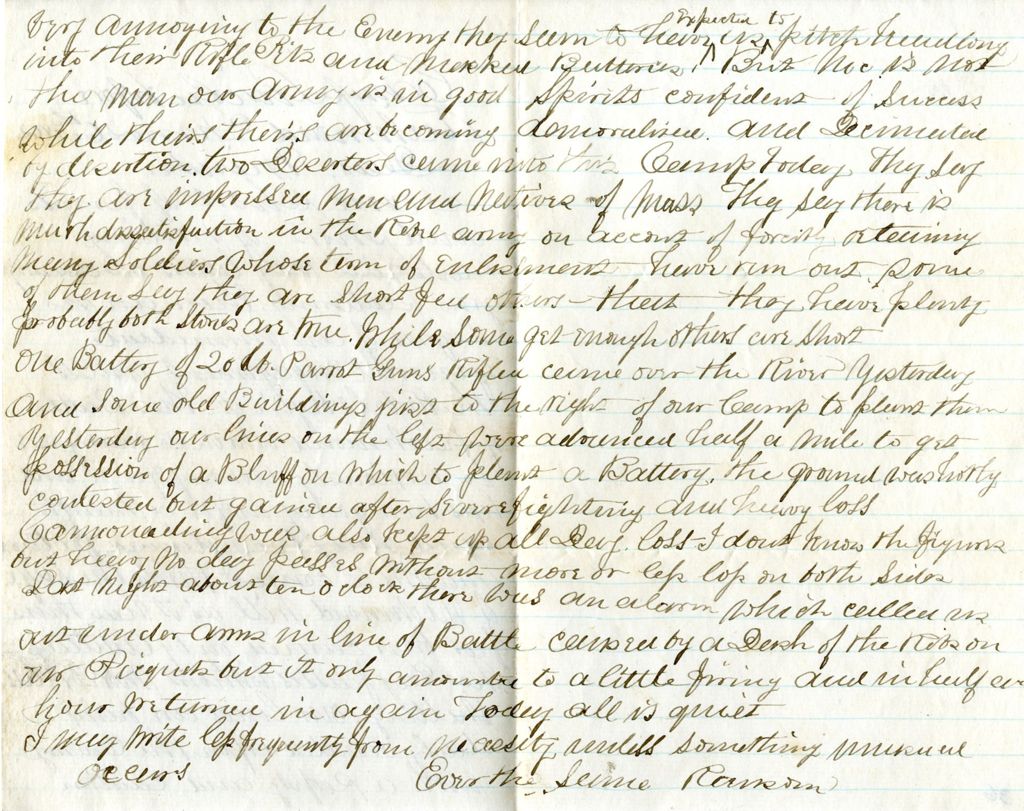 very annoying to the Enemy they seem to have Expected to us pitch headlong
into their Rifle Pits and Masked Batteries, But Mc is not
the man our Army is in good spirits confident of success
while theirs theirs are becoming demoralised. and Decimated
by desertion. two Deserters came into this Camp today They say
they are impressed men and Natives of Mass They say there is
much dissatisfaction in the Rebel army on account of forcibly retaining
many Soldiers whose term of Enlistment have run out some
of them say they are short fed others that they have plenty
probably both stories are true. While some get enough others are short
One Battery of 20 lb. Parrot Guns Rifled came over the River Yesterday
and some old Buildings just to the right of our Camp to plant them
Yesterday our lines on the left were advanced half a mile to get
possession of a Bluff on which to plant a Battery. the ground was hotly
contested but gained after severe fighting and heavy loss
Cannonading was also kept up all Day. loss I dont know the figures
but heavy No day passes without more or less loss on both sides
Last Night about ten o clock there was an alarm which called us
out under arms in line of Battle caused by a Dash of the Rebs on
our Picquets but it only amounted to a little firing and in half an
hour returned in again Today all is quiet
I may write less frequently from necessity unless something unusual
occurs Ever the Same Ransom